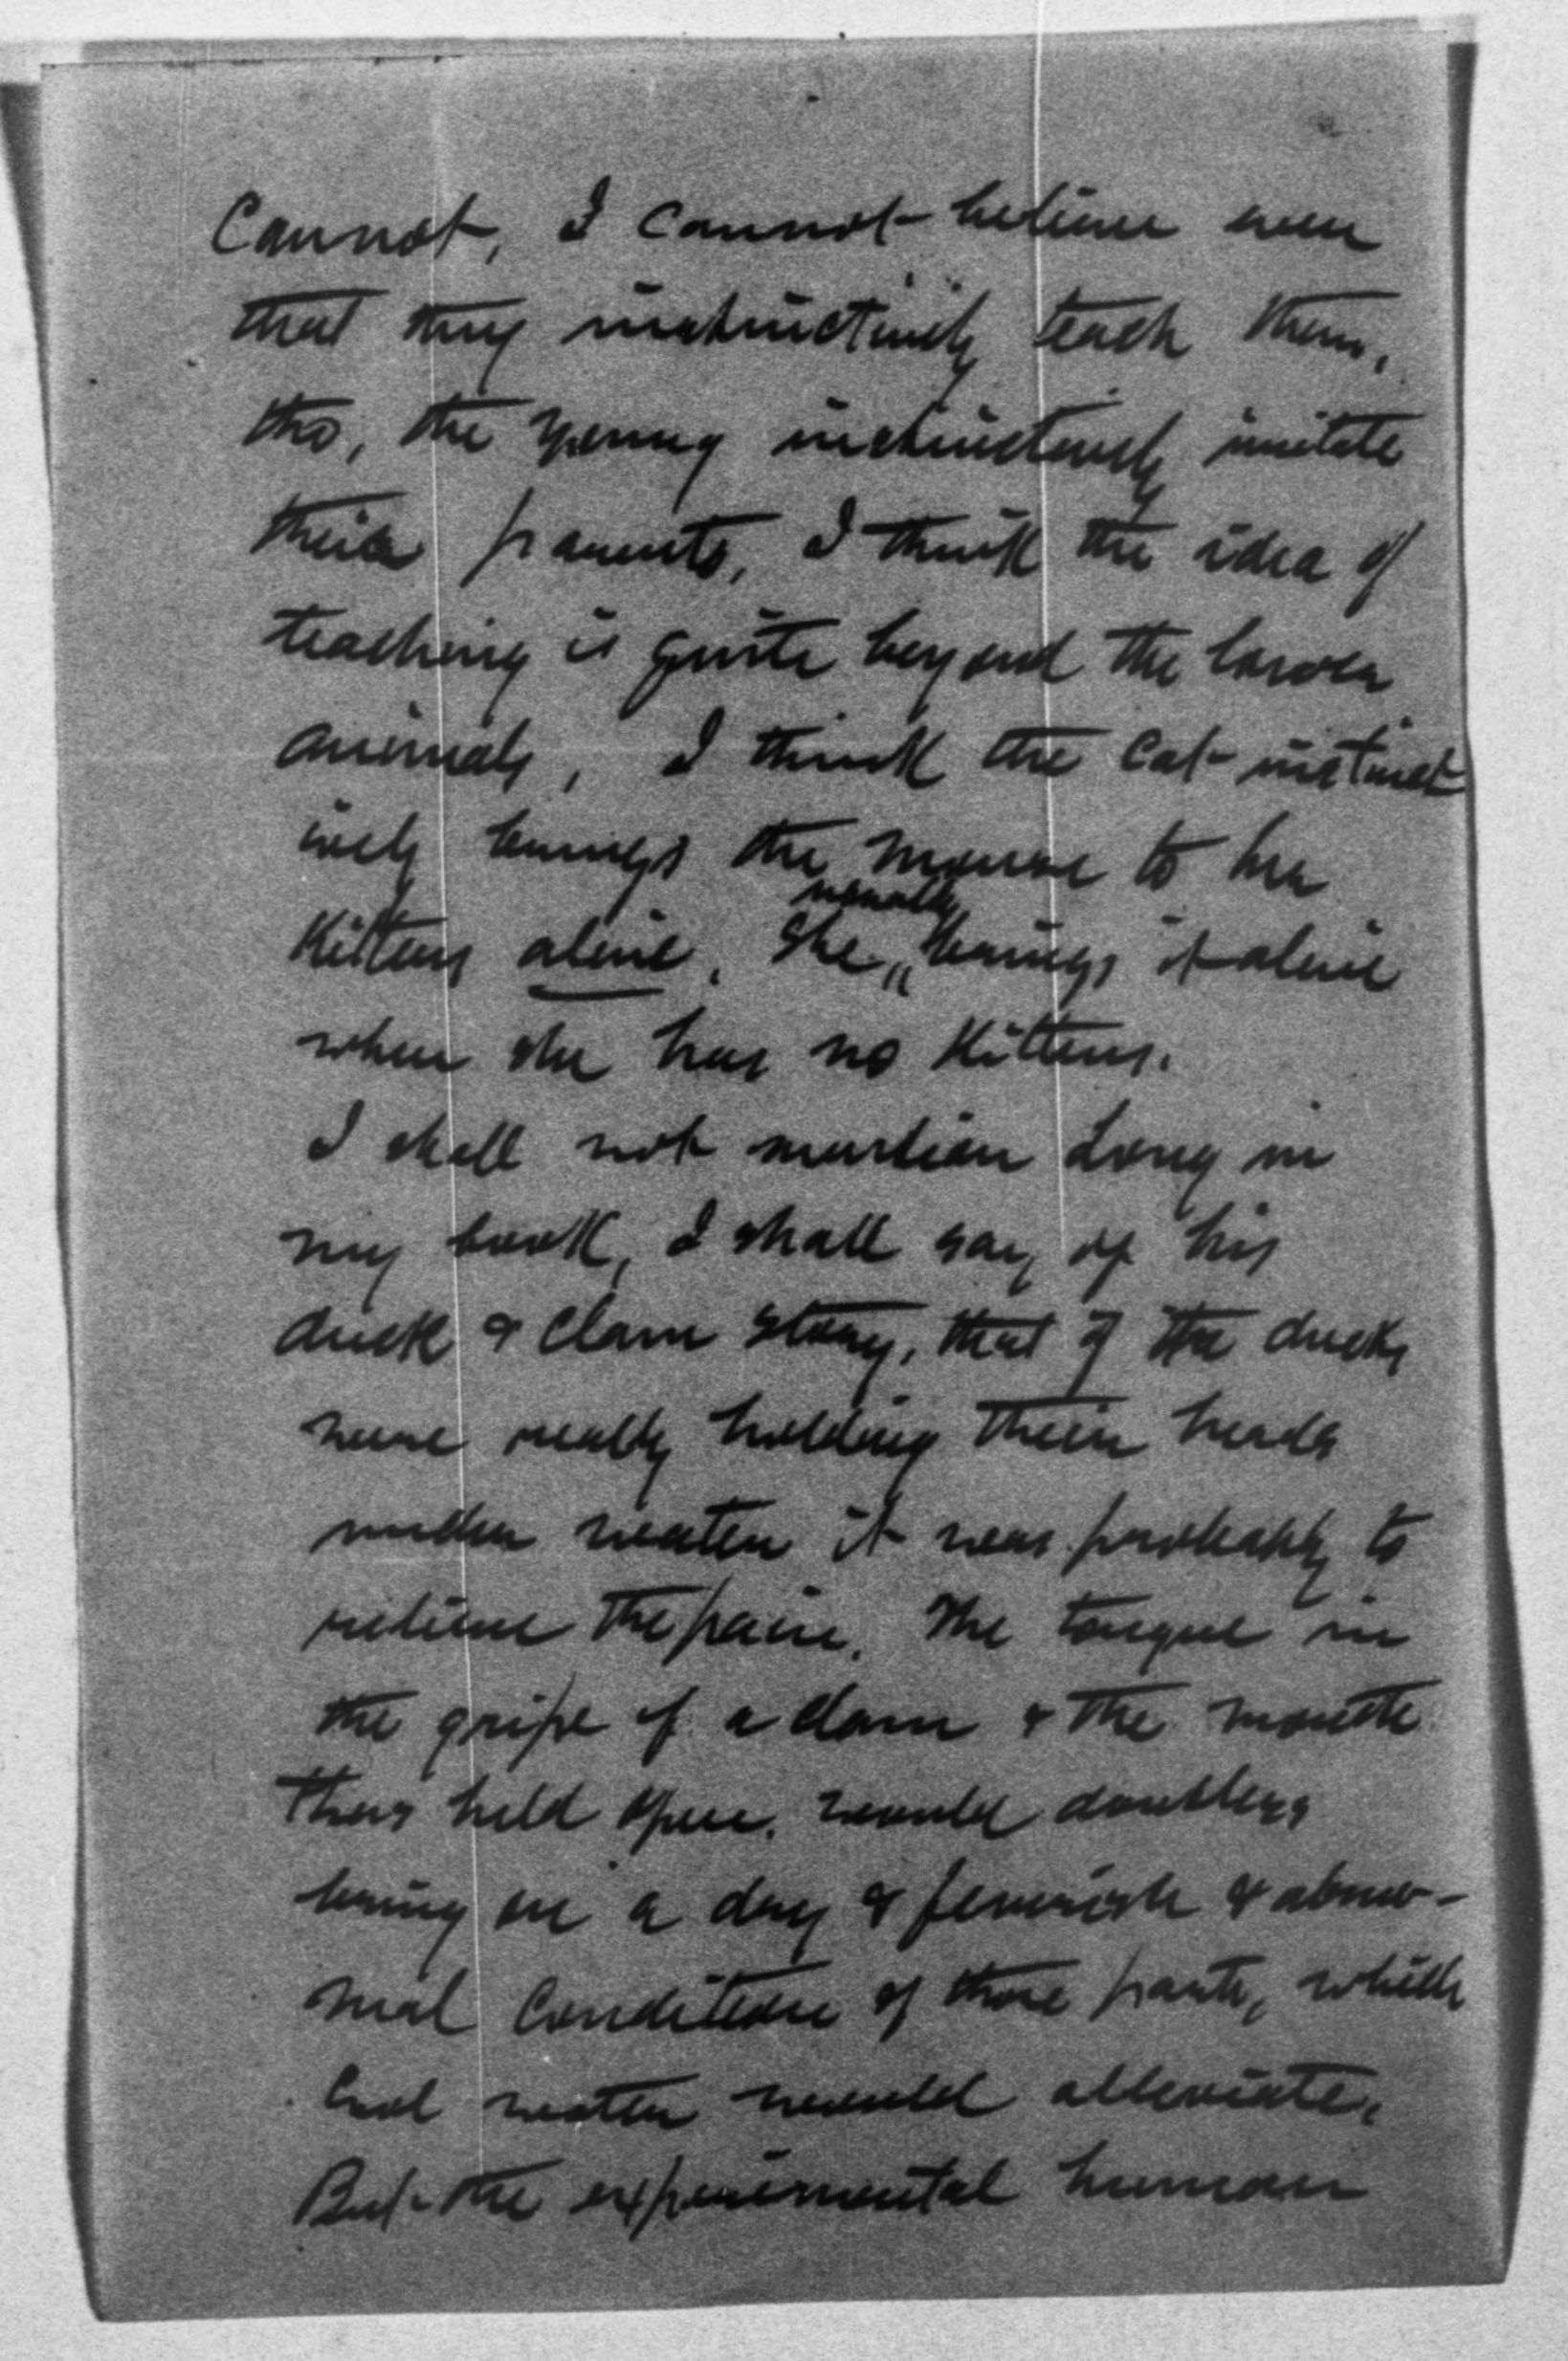 Cannot, I cannot believe even
that they instinctively teach them,
tho, the young instinctively imitate
their parents, I think the idea of
teaching is quite beyond the lower
animals, I think the cat instinct
ively brings the mouse to her
Kittens alive. She usually brings it alive
when she has no Kittens.
I shall not mention Long in
my book, I shall say of his
duck & clam story, that if the ducks
were really holding their heads
under water it was probably to
relieve the pain. The tongue in
the gripe of a clam & the mouth
thus held open, would doubtless
bring on a dry & feverish & abnor-
mal condition of those parts, which
cool water would alleviate.
But the experimental human